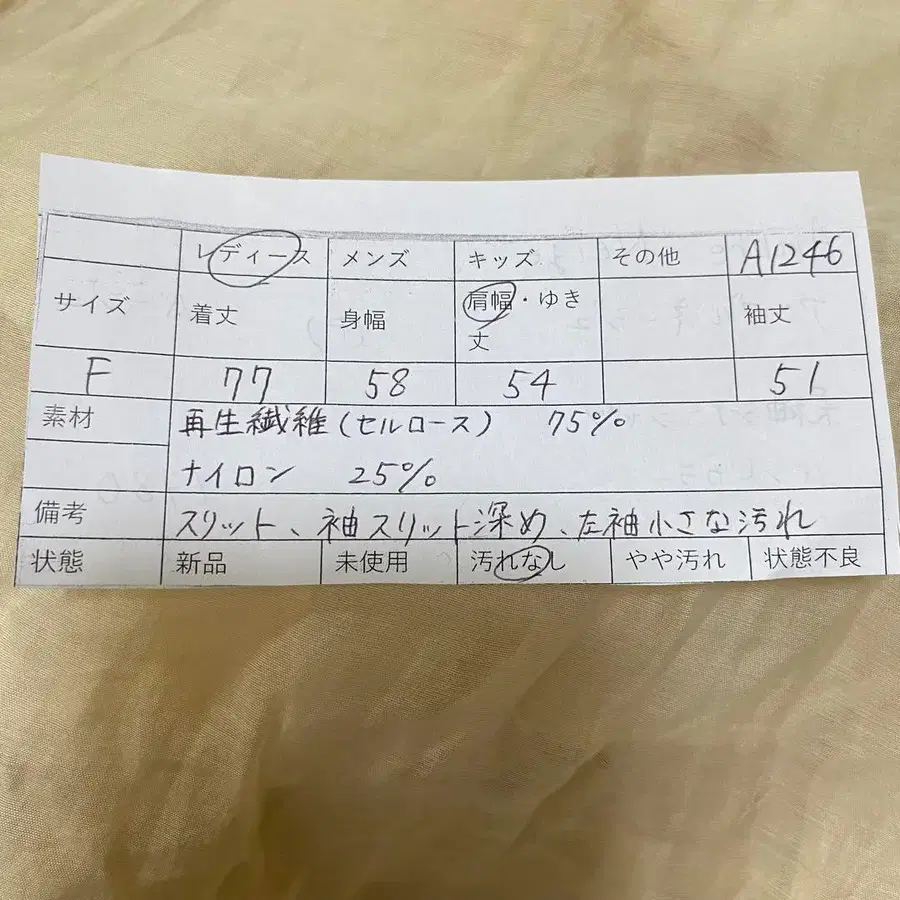 レディース メンズ キッズ その他 A1246
サイズ 着丈 身幅 肩幅・ゆき丈 袖丈
F 77 58 54 51
素材 再生繊維(セルロース) 75%
ナイロン 25%
備考 スリット、袖スリット深め、左袖小さな汚れ
状態 新品 未使用 汚れなし やや汚れ 状態不良